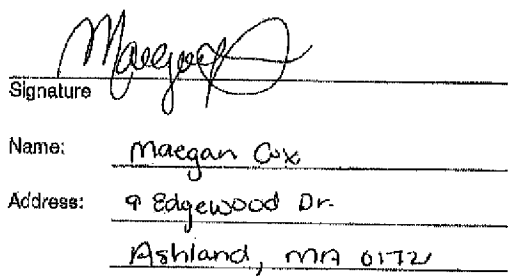 Signature
Name: Maegan Cox
Address: 9 Edgewood Dr.
Ashland, MA 01721